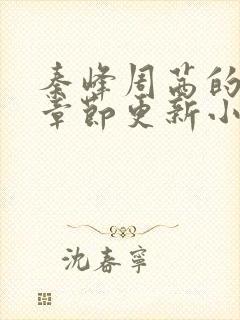 秦峰周茜的
章節更新小
沈春寧